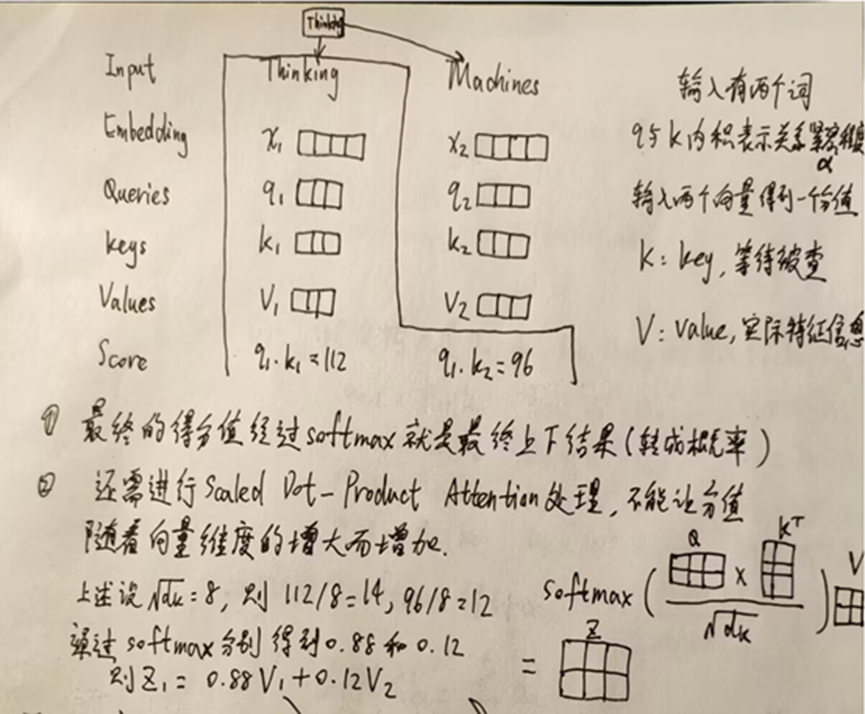 Thinking
Input Thinking Machines 输入有两个词
Embedding x₁ x₂ q与k内积表示关系紧密程度
α
Queries q₁ q₂ 输入两个向量得到一个分值
keys k₁ k₂ K: key, 等待被查
Values V₁ V₂ V: value, 实际特征信息
Score q₁·k₁=112 q₁·k₂=96
① 最终的得分值经过softmax就是最终上下结果(转成概率)
② 还需进行Scaled Dot-Product Attention处理, 不能让分值
随着向量维度的增大而增加.
上述设√dk=8, 则 112/8=14, 96/8=12
通过softmax分别得到0.88和0.12
则Z₁=0.88V₁+0.12V₂
Q Kᵀ V
softmax( × )
√dk
Z
=